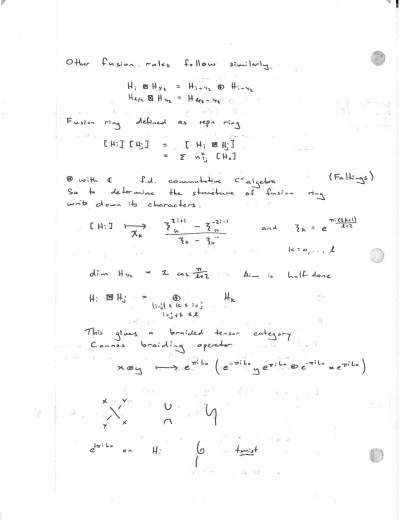 Other fusion rules follow similarly.
H_i ⊠ H_{1/2} = H_{i+1/2} ⊕ H_{i-1/2}
H_{ℓ/2} ⊠ H_{1/2} = H_{ℓ/2-1/2}
Fusion ring defined as repn ring
[H_i] [H_j] = [H_i ⊠ H_j]
= Σ n_{ij}^k [H_k]
⊗ with ℂ f.d. commutative C* algebra (Faltings)
So to determine the structure of fusion ring
write down its characters.
[H_i] ⟼_{χ_k} (ξ_k^{2i+1} - ξ_k^{-2i-1}) / (ξ_k - ξ_k^{-1}) and ξ_k = e^{πi(k+1)/(ℓ+2)}
k = 0, ..., ℓ
dim H_{1/2} = 2 cos π/(ℓ+2) Aim is half done
H_i ⊠ H_j = ⊕ H_k
|i-j| ≤ k ≤ i+j
i+j+k ≤ ℓ
This gives a braided tensor category
Connes braiding operator
x ⊗ y ⟼ e^{πiL_0} (e^{-πiL_0} y e^{πiL_0} ⊗ e^{-πiL_0} x e^{πiL_0})
X Y
Y X
e^{2πiL_0} on H_i twist